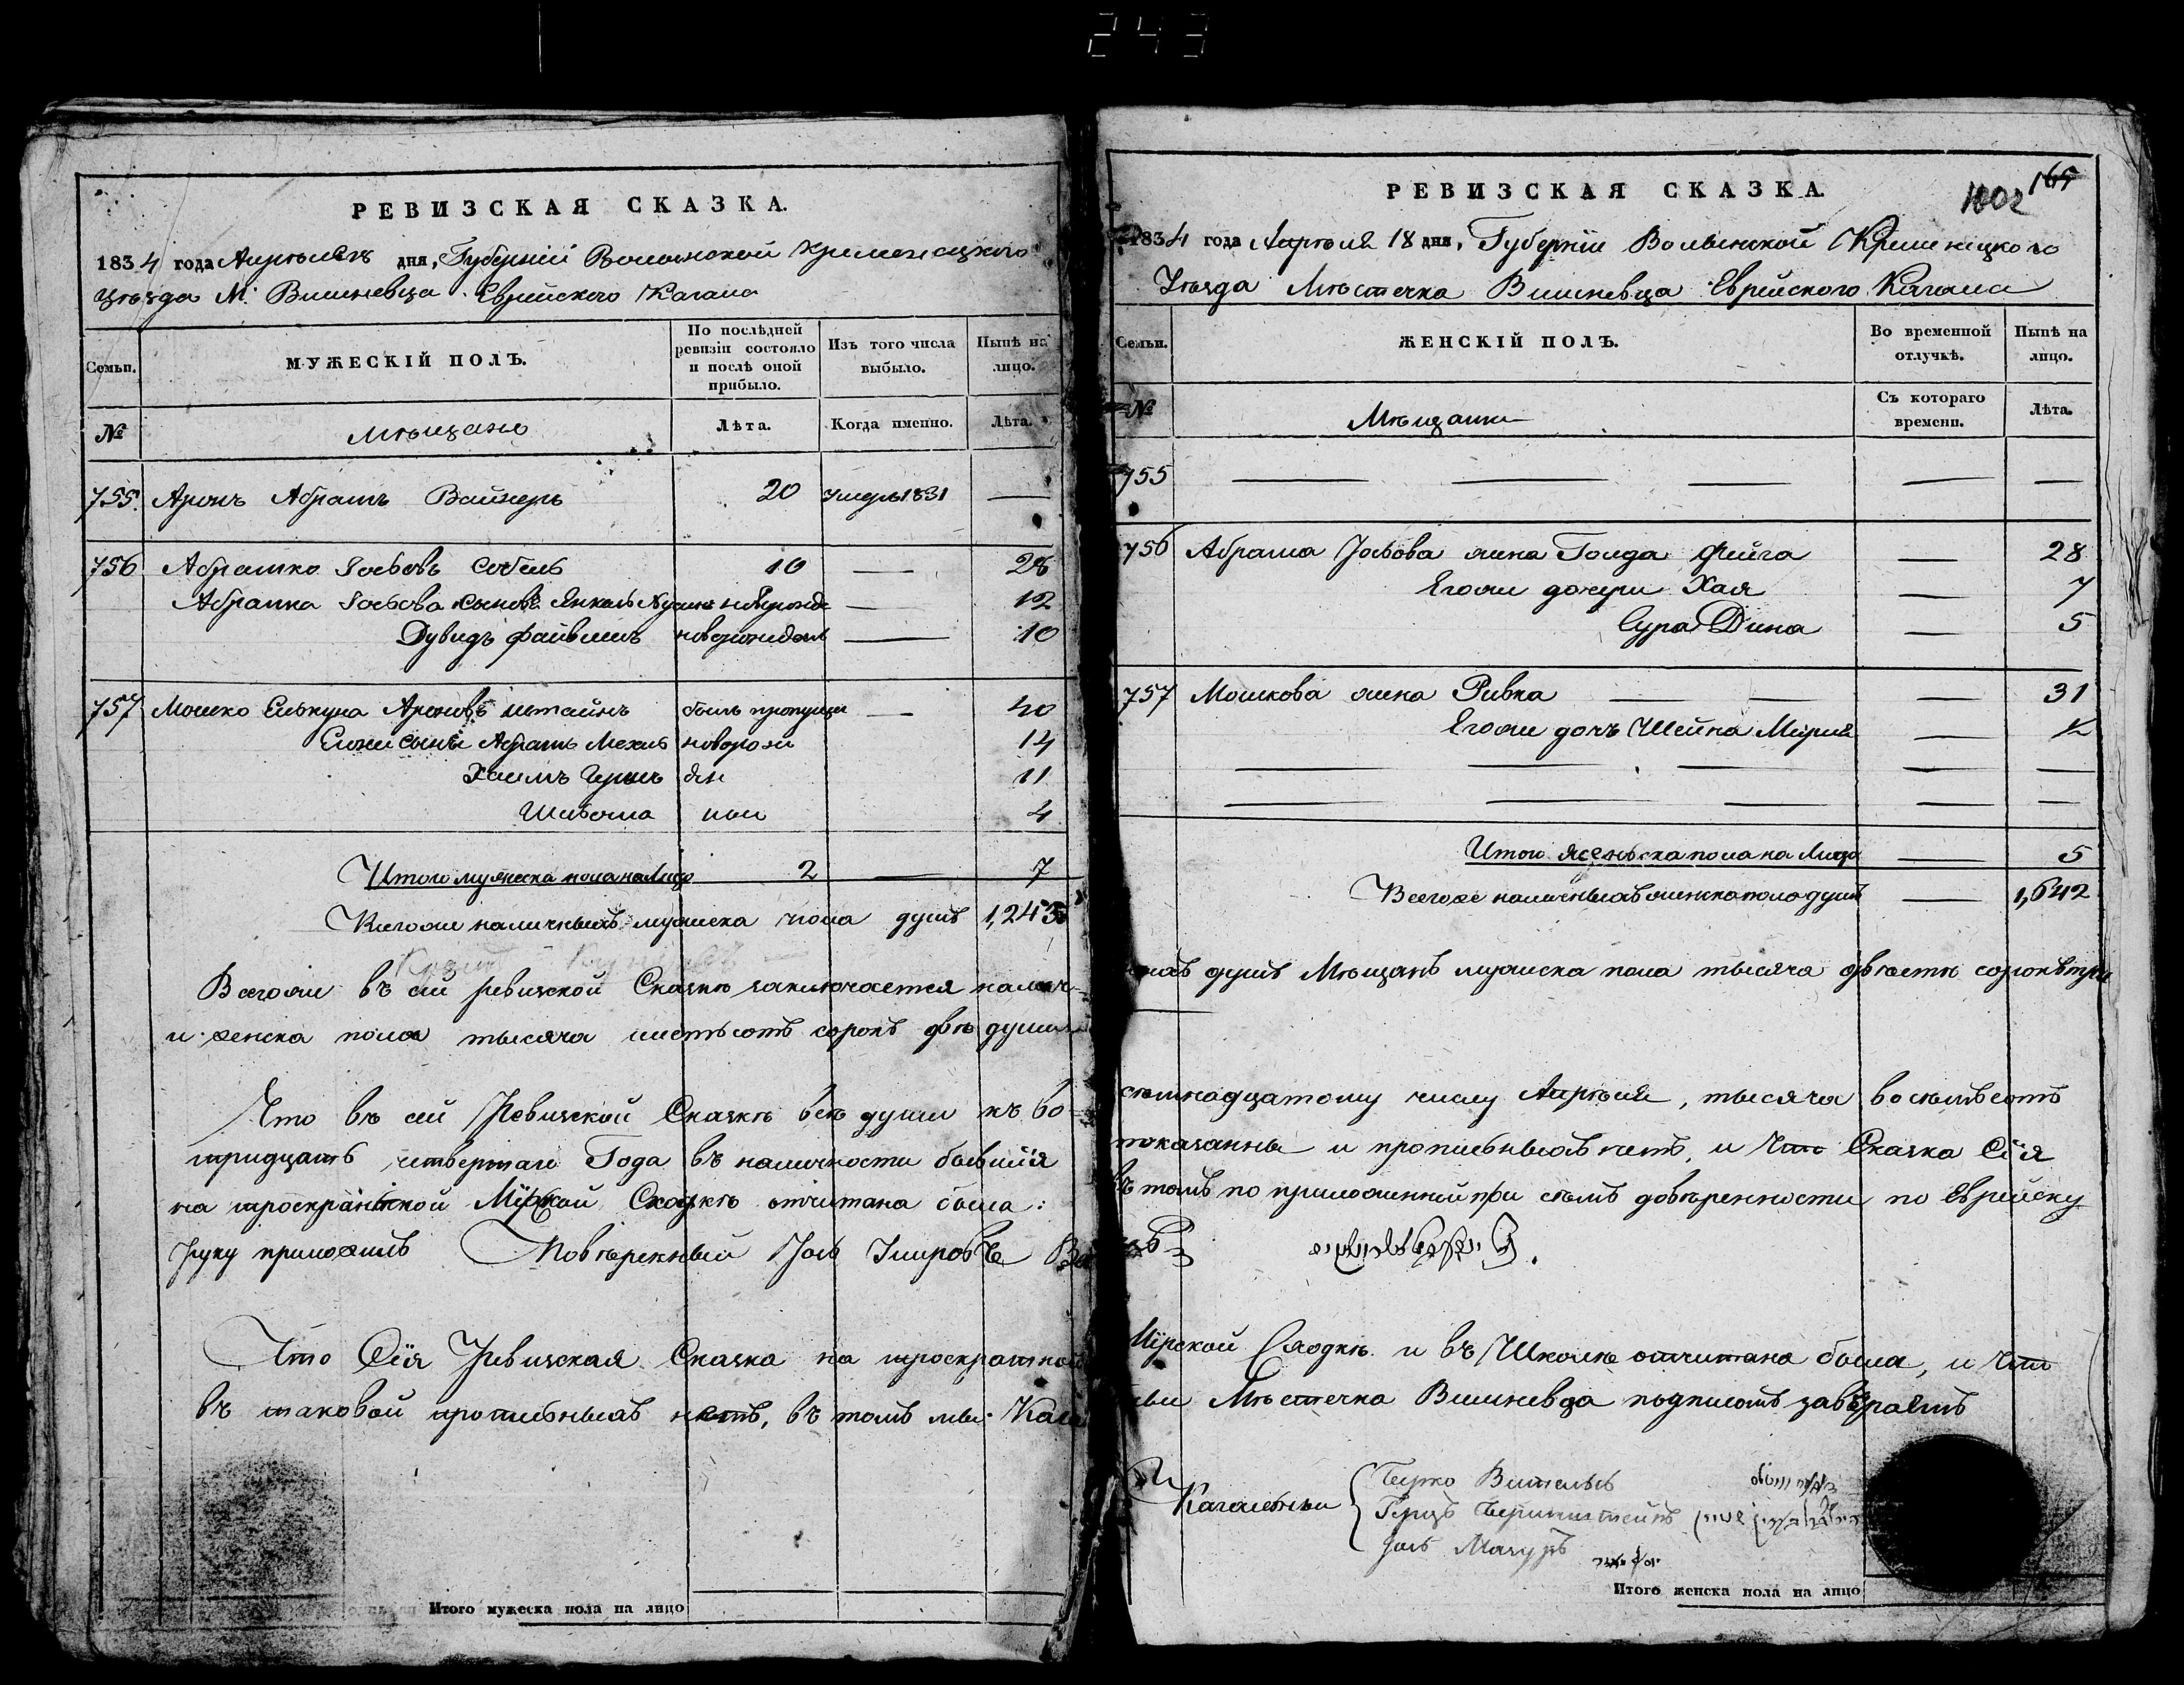 243
РЕВИЗСКАЯ СКАЗКА.
1834 года Апрѣля дня, Губерніи Волынской Кременецкого
Уѣзда М. Вишневца Еврейского Кагала
Семьи.
МУЖЕСКІЙ ПОЛЪ.
По послѣдней ревизіи состояло и послѣ оной прибыло.
Изъ того числа выбыло.
Нынѣ на лицо.
№
Мѣщане
Лѣта.
Когда именно.
Лѣта.
755. Аронъ Абрамъ Вайнеръ 20 умеръ 1831 —
756 Абрашко Іосьовъ Собель 10 — 28
Абрашка Іосьова сыновя Янкель новорожде — 12
Дувидъ Файвишъ новорожден — 10
757 Мошко Елькуна Ароновъ Штайнъ былъ пропущен — 40
Егоже сыны Абрамъ Мехль новорож 14
Хаимъ Гершъ ден 11
Шльома ныи 4
Итого мужеска пола на лицо 2 — 7
Всегоже наличныхъ мужеска пола душъ 1,243
Всегоже въ сей ревизской Сказкѣ заключается налич-
и женска пола тысяча шестьсотъ сорокъ двѣ души
Что въ сей Ревизской Сказкѣ всѣ души къ во-
тридцать четвертаго Года въ наличности бывшія
на троекратной Мірской Сходкѣ отчитана была:
руку приложилъ Повѣренный Іось
Что Сія Ревизская Сказка на троекратной
въ таковой прописныхъ нетъ, въ томъ мы Кага
Итого мужеска пола на лицо
РЕВИЗСКАЯ СКАЗКА.
1002 165
1834 года Апрѣля 18 дня, Губерніи Волынской Кременецкого
Уѣзда Мѣстечка Вишневца Еврейского Кагала
Семьи.
ЖЕНСКІЙ ПОЛЪ.
Во временной отлучкѣ.
Нынѣ на лицо.
№
Мѣщанки
Съ котораго времени.
Лѣта.
755 — — — — —
756 Абрашка Іосьова жена Голда Фейга — 28
Егоже дочери Хая — 7
Сура Дина — 5
757 Мошкова жена Ривка — — — 31
Егоже дочъ Шейна Мирля —
Итого женьска пола на лицо — 5
Всегоже наличныхъ женска пола душъ — 1,642
ныхъ душъ Мѣщанъ мужеска пола тысяча двѣсти сорокъ три
сѣмнадцатому числу Апрѣля, тысяча восѣмьсотъ
показанны и прописныхъ нетъ, и что Сказка Сія
въ томъ по приложенной при сѣмъ довѣренности по Еврейску
Мірской Сходкѣ и въ Школѣ отчитана была, и что
ные Мѣстечка Вишневца подписомъ завѣраемъ
Кагальные
Берко Вительсъ
Герцъ Беринштейнъ
Іось Мазуръ
Итого женска пола на лицо